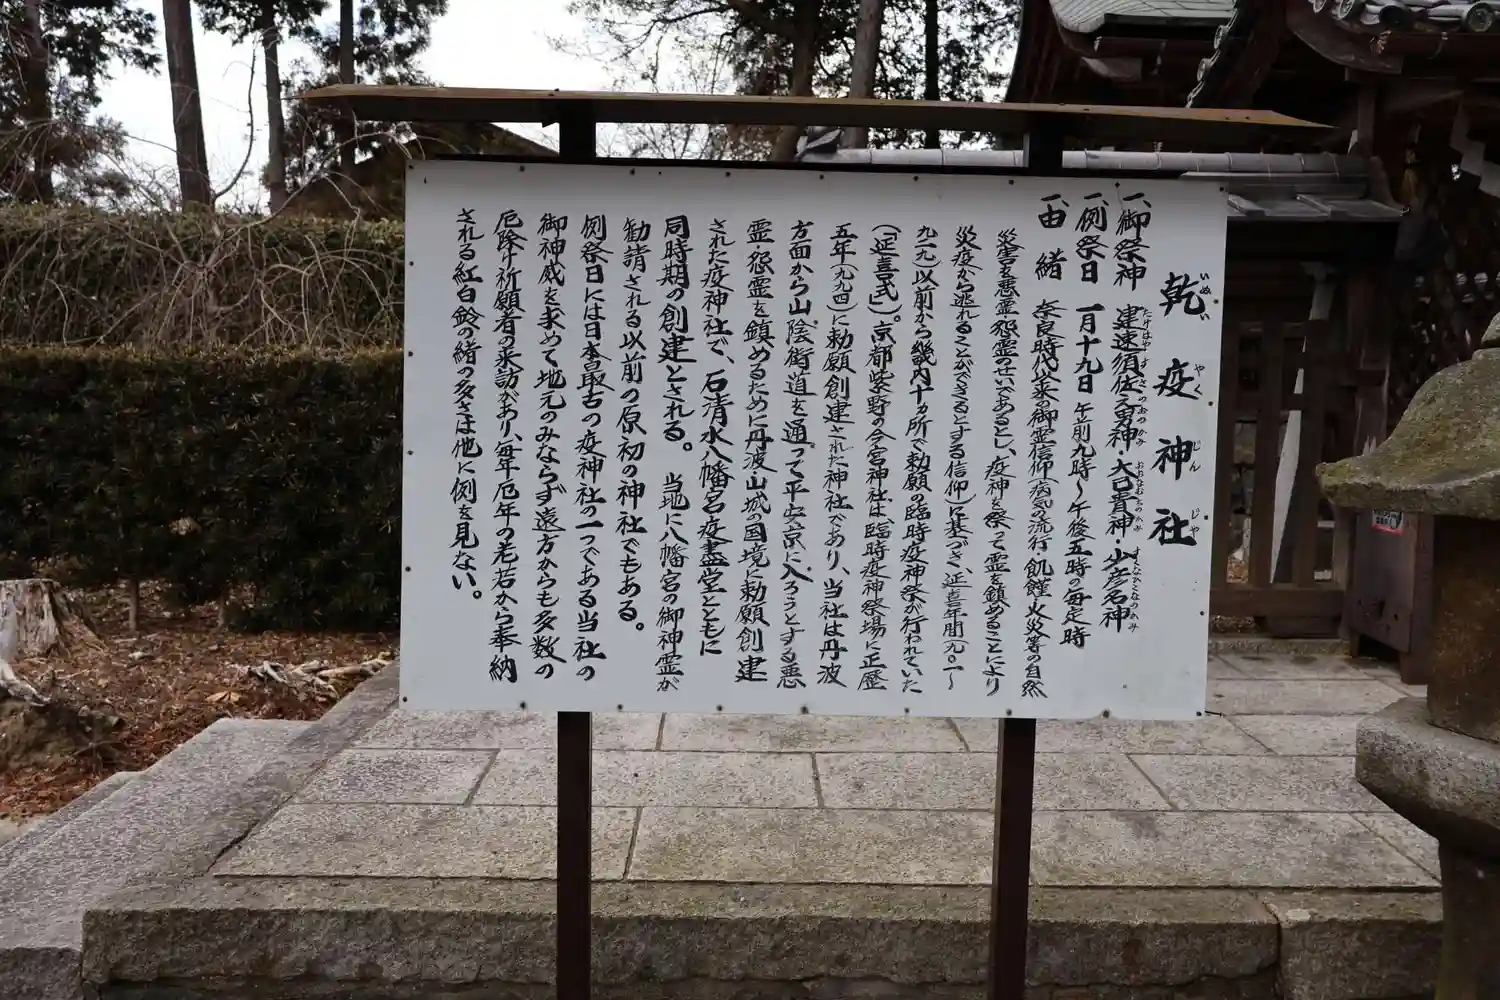 乾疫神社
いぬいやくじんじや
一、御祭神 建速須佐之男神・大己貴神・少彦名神
たけはやすさのおのかみ おおなむちのかみ すくなひこなのかみ
一、例祭日 一月十九日 午前九時～午後五時の毎定時
一、由緒 奈良時代以来の御霊信仰(病気の流行・飢饉・火災等の自然
災害を悪霊・怨霊の仕いであるとし、疫神を祭って霊を鎮めることにより
災疫から逃れることができるとする信仰)に基づき、延喜年間(九〇一～
九一九)以前から畿内十ヵ所で勅願の臨時疫神祭が行われていた
(「延喜式」)。京都紫野の今宮神社は、臨時疫神祭場に正歴
五年(九九四)に勅願創建された神社であり、当社は丹波
方面から山陰街道を通って平安京に入ろうとする悪
霊・怨霊を鎮めるために丹波山城の国境に勅願創建
された疫神社で、石清水八幡宮疫塚堂とともに
同時期の創建とされる。 当地に八幡宮の御神霊が
勧請される以前の原初の神社でもある。
例祭日には日本最古の疫神社の一つである当社の
御神威を求めて地元のみならず遠方からも多数の
厄除け祈願者の来訪があり、毎年厄年の老若から奉納
される紅白鈴の緒の多さは他に例を見ない。